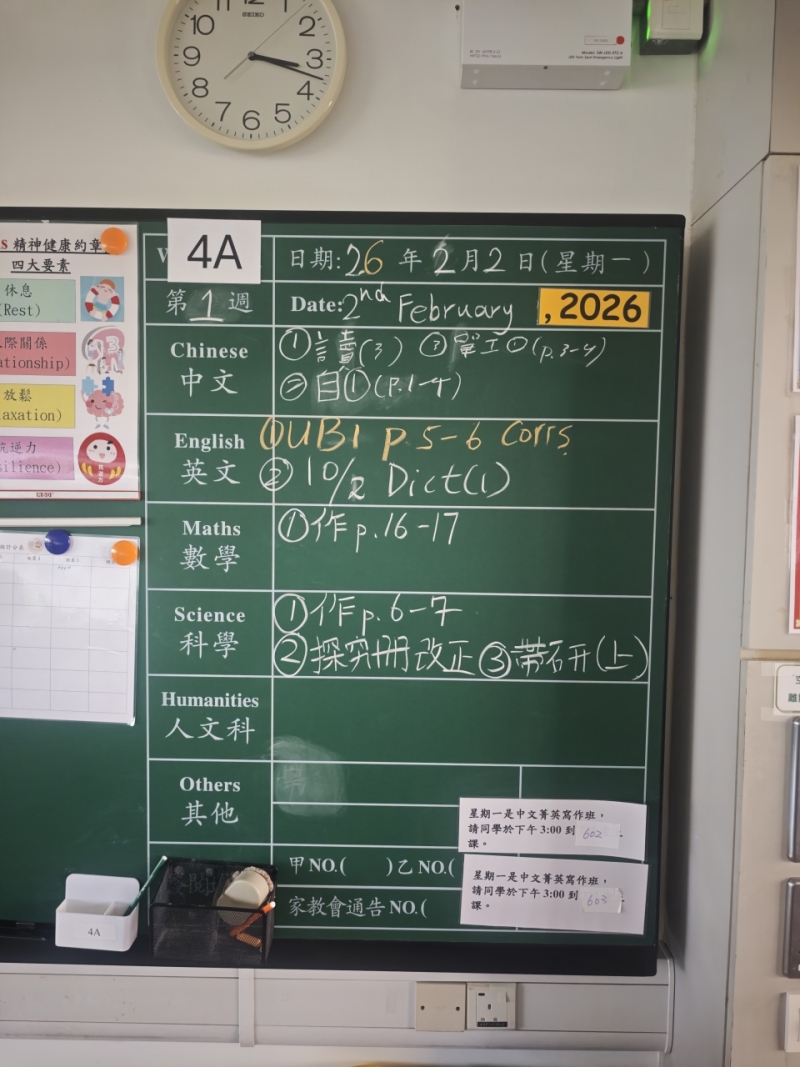 12
1
2
3
4
5
6
7
8
9
10
SEIKO
精神健康約章
四大要素
休息
(Rest)
際關係
放鬆
4A
日期:26年2月2日(星期一)
第1週
Date:2nd February, 2026
Chinese
中文
①言賣(3) ③單工①(p.3-4)
②自①(P.1-4)
English
英文
①UB1 p 5-6 Corrs
②10/2 Dict(1)
Maths
數學
①作p.16-17
Science
科學
①作p.6-7
②探究冊改正 ③帶石开(上)
Humanities
人文科
Others
其他
星期一是中文菁英寫作班,
請同學於下午 3:00 到 602
課。
甲NO.( )乙NO.(
星期一是中文菁英寫作班,
請同學於下午 3:00 到 603
課。
家教會通告 NO.(
4A